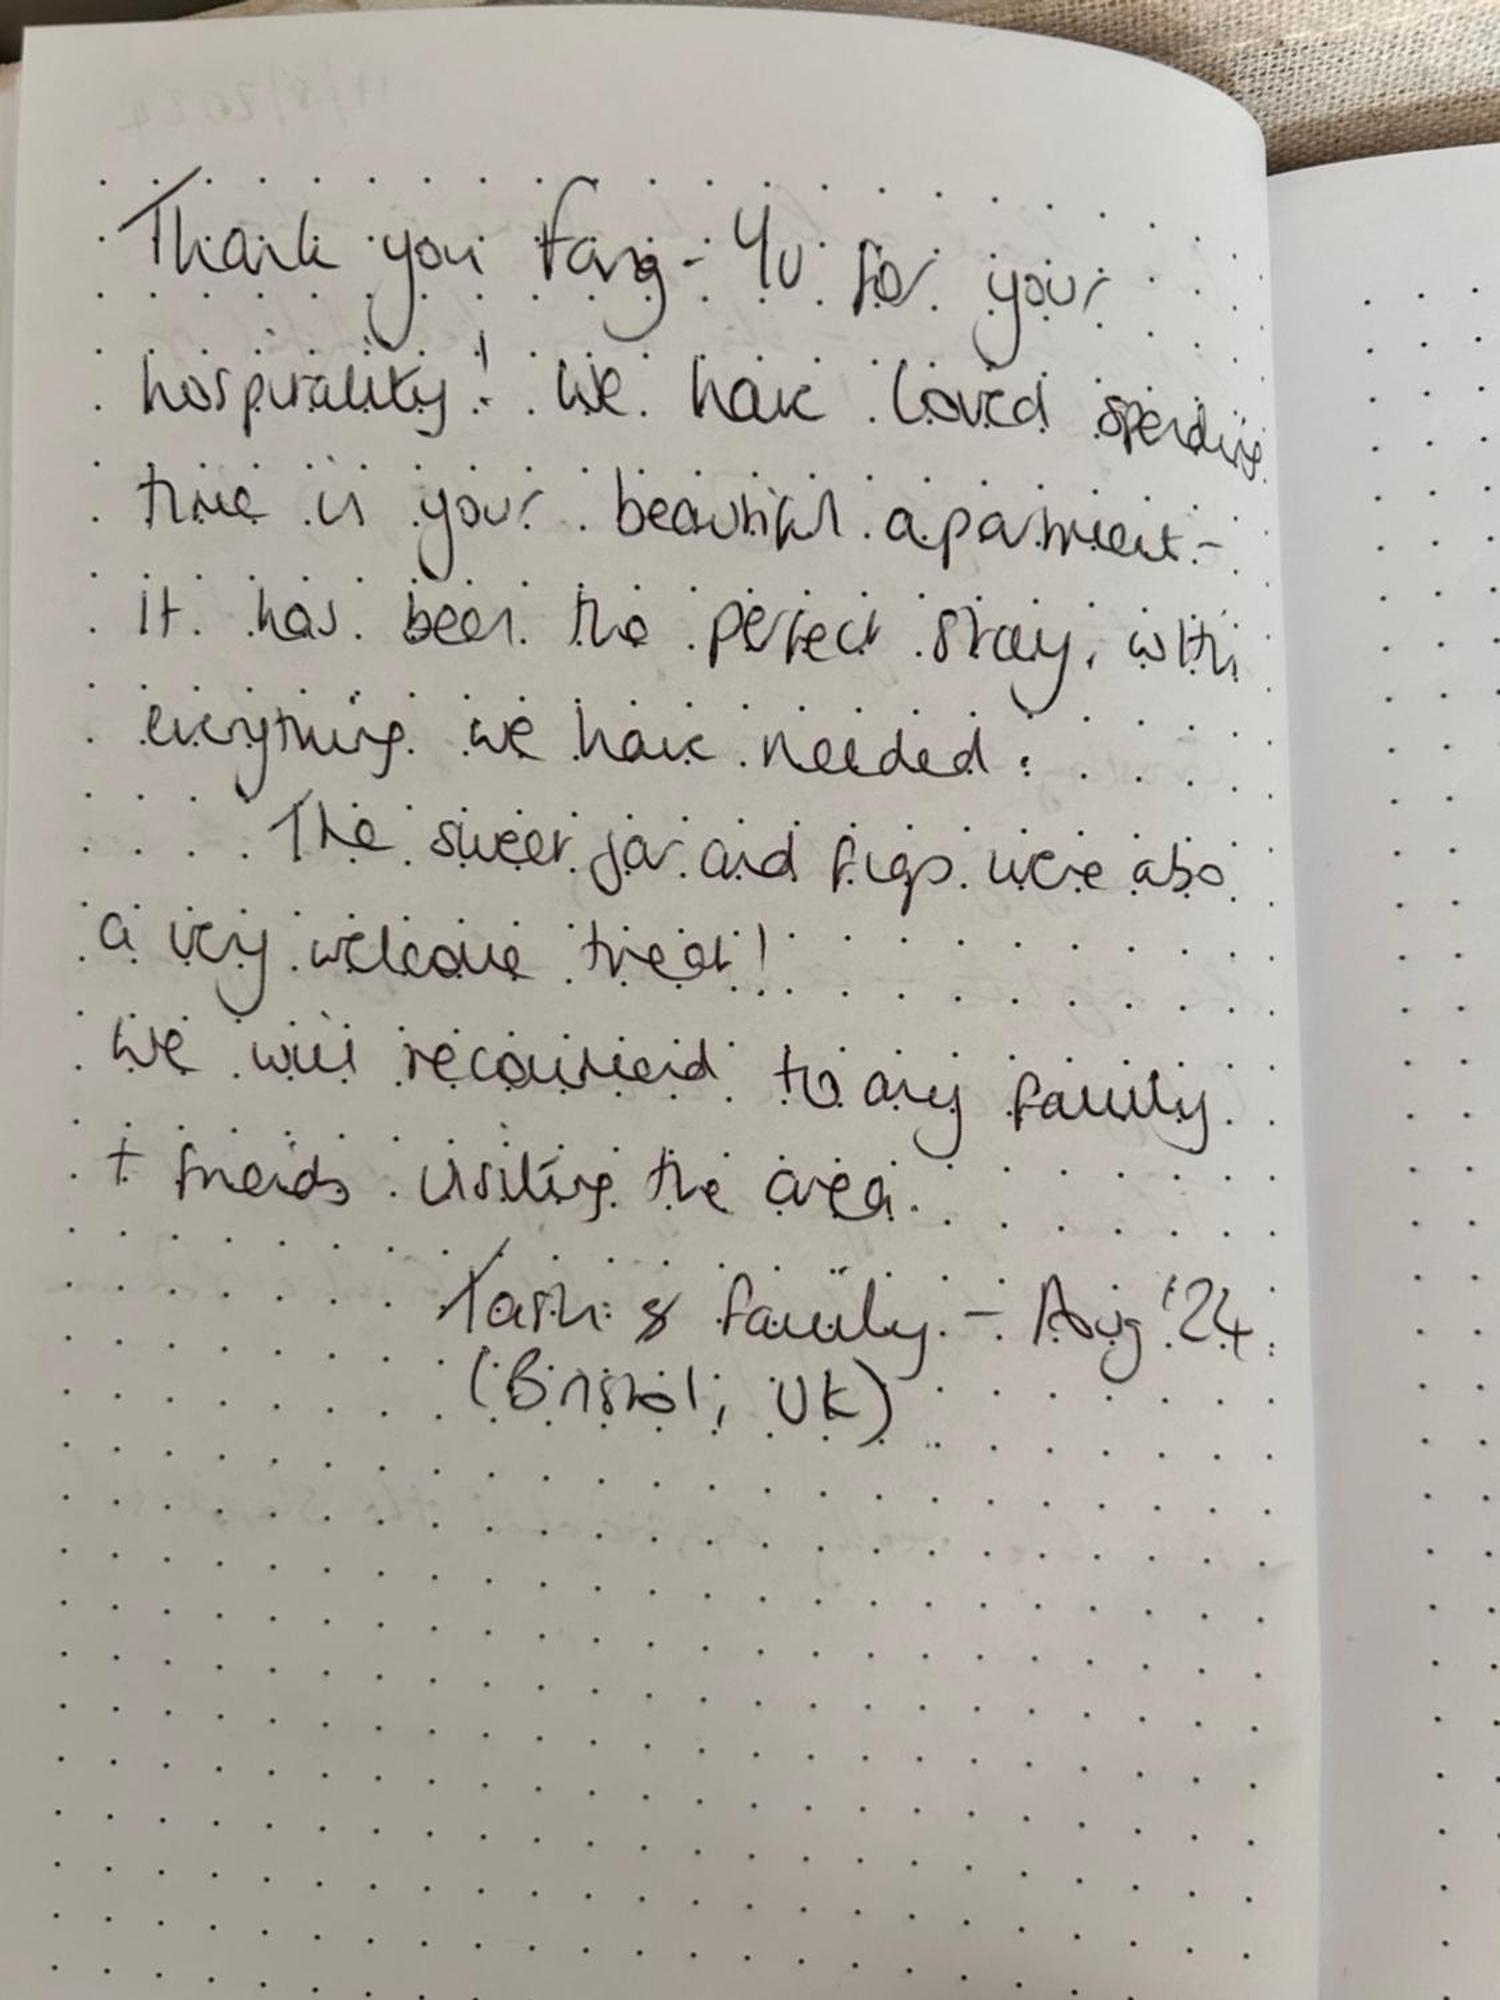 Thank you Fang-Yu for your
hospitality! We have loved spending
time in your beautiful apartment -
it has been the perfect stay, with
everything we have needed.
The sweet jar and figs were also
a very welcome treat!
We will recommend to any family
+ friends visiting the area.
Tash & family - Aug '24
(Bristol, UK)